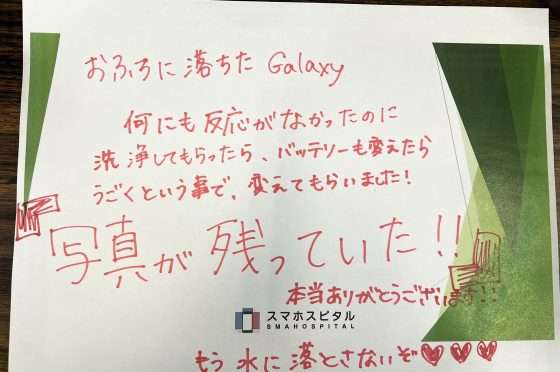 おふろに落ちた Galaxy
何にも反応がなかったのに
洗浄してもらったら、バッテリーも変えたら
うごくという事で、変えてもらいました!
写真が残っていた!!
本当ありがとうございます!!
スマホスピタル
SMAHOSPITAL
もう水に落とさないぞ♥♥♥